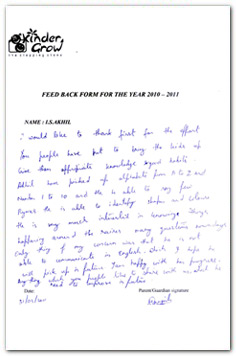 kinder
Grow
the stepping stone
FEED BACK FORM FOR THE YEAR 2010 – 2011
NAME : I.S.AKHIL
I would like to thank first for the effort
You people have put to bring the kids up
Give them appropriate knowledge & good habits.
Akhil have picked up alphabets from A to Z and
Number 1 to 10 and He is able to say few
rhymes He is able to identify shapes and colours
He is very much interested in knowing things
happening around. He raises many questions nowadays
Only thing if my concern was that he is not
able to communicate in english. which I hope he
will pick up in future. I am happy with her progress.
Anything which you people like to share with me what he
need to improve in future
Date:
Parent/Guardian signature